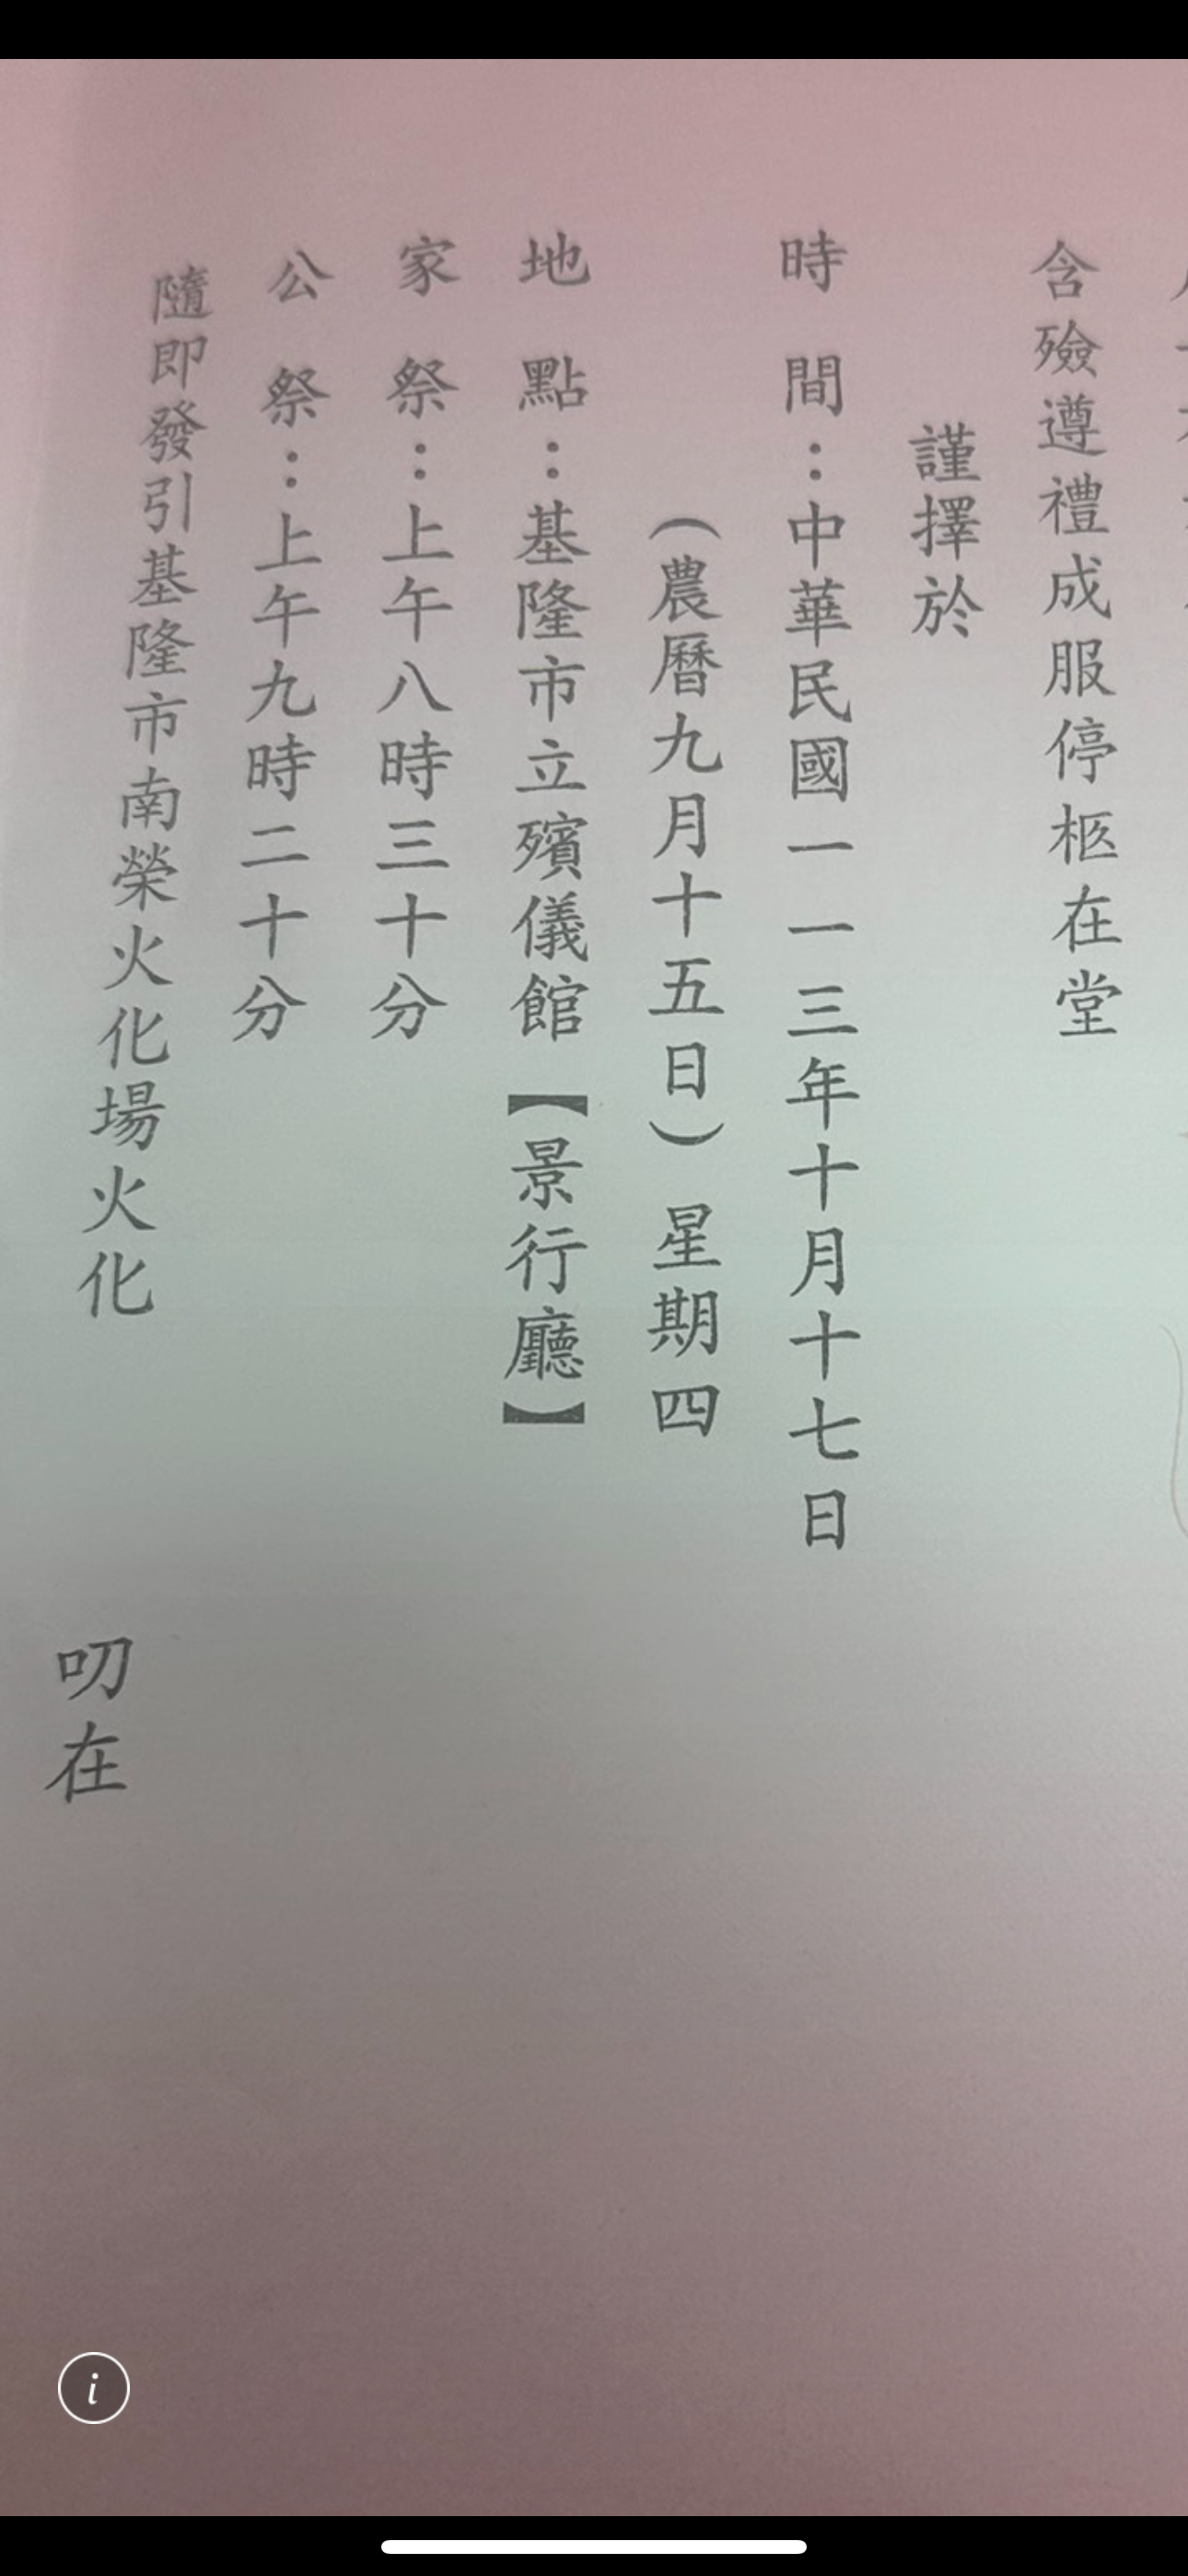 含殮遵禮成服停柩在堂
謹擇於
時間：中華民國一一三年十月十七日
（農曆九月十五日）星期四
地點：基隆市立殯儀館【景行廳】
家祭：上午八時三十分
公祭：上午九時二十分
隨即發引基隆市南榮火化場火化
叨在
i